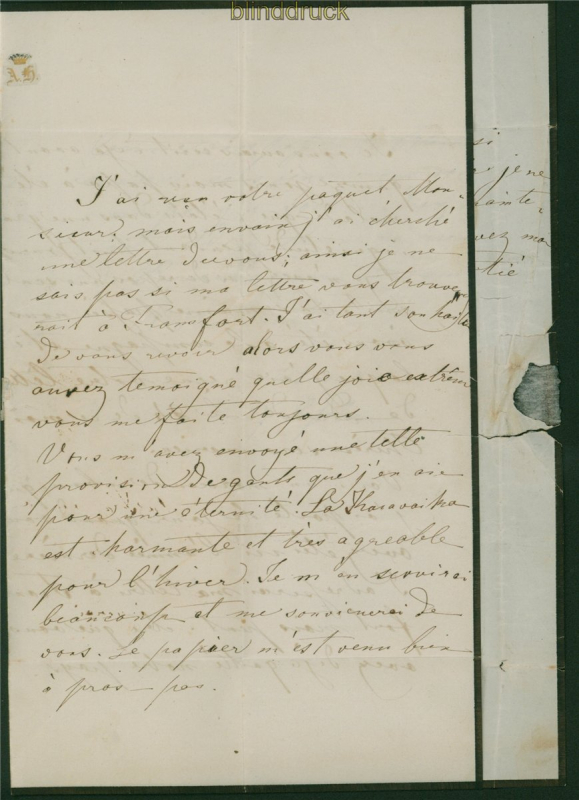 blinddruck
J'ai reçu votre paquet Mon-
sieur, mais envain j'ai cherché
une lettre de vous; ainsi je ne
sais pas si ma lettre vous trouve
rait à Francfort. J'ai tant souhaité
de vous revoir alors vous vous
temoigné quelle joie extrême
vous me faite toujours.
Vous m'avez envoyé une telle
provision de gants que j'en aie
pour une éternité. La Kasavaika
est harmante et très agreable
pour l'hiver. Je m'en servirai
biancoup et me souvienerei de
vous. Le papier m'est venu bien
à pros-pos.
si
je ne
vez ma
tié